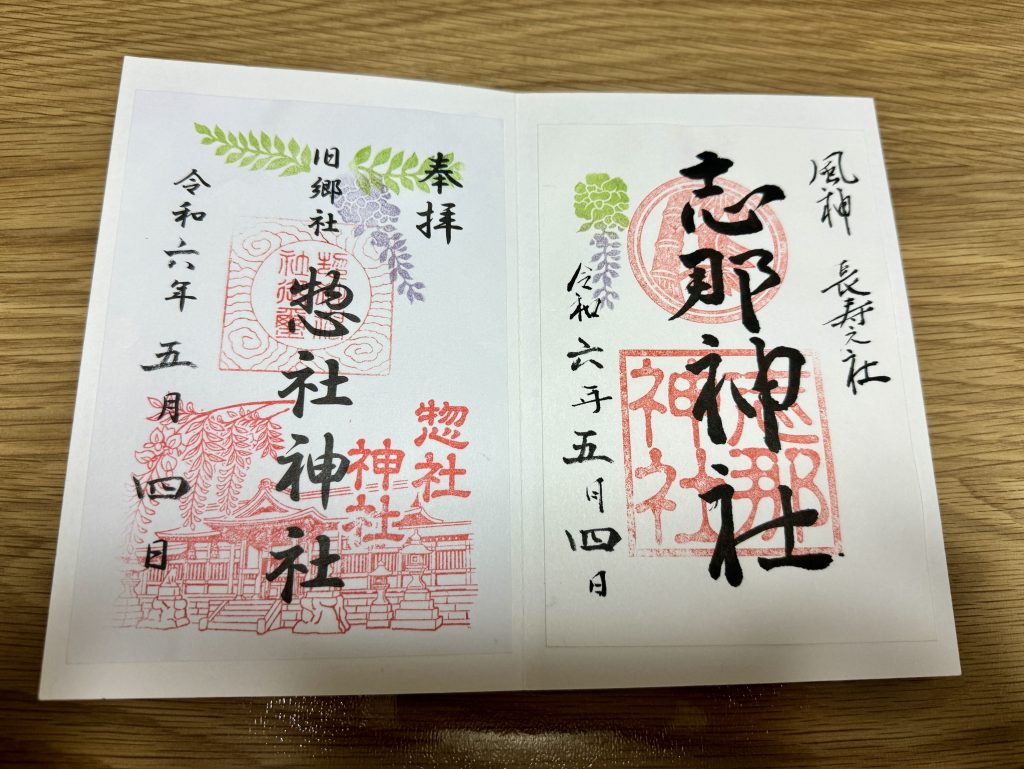 風神 長寿之社
志那神社
志那
神社
令和六年五月四日
奉拝
旧郷社
惣社神社
惣社
神社
令和六年 五月四日